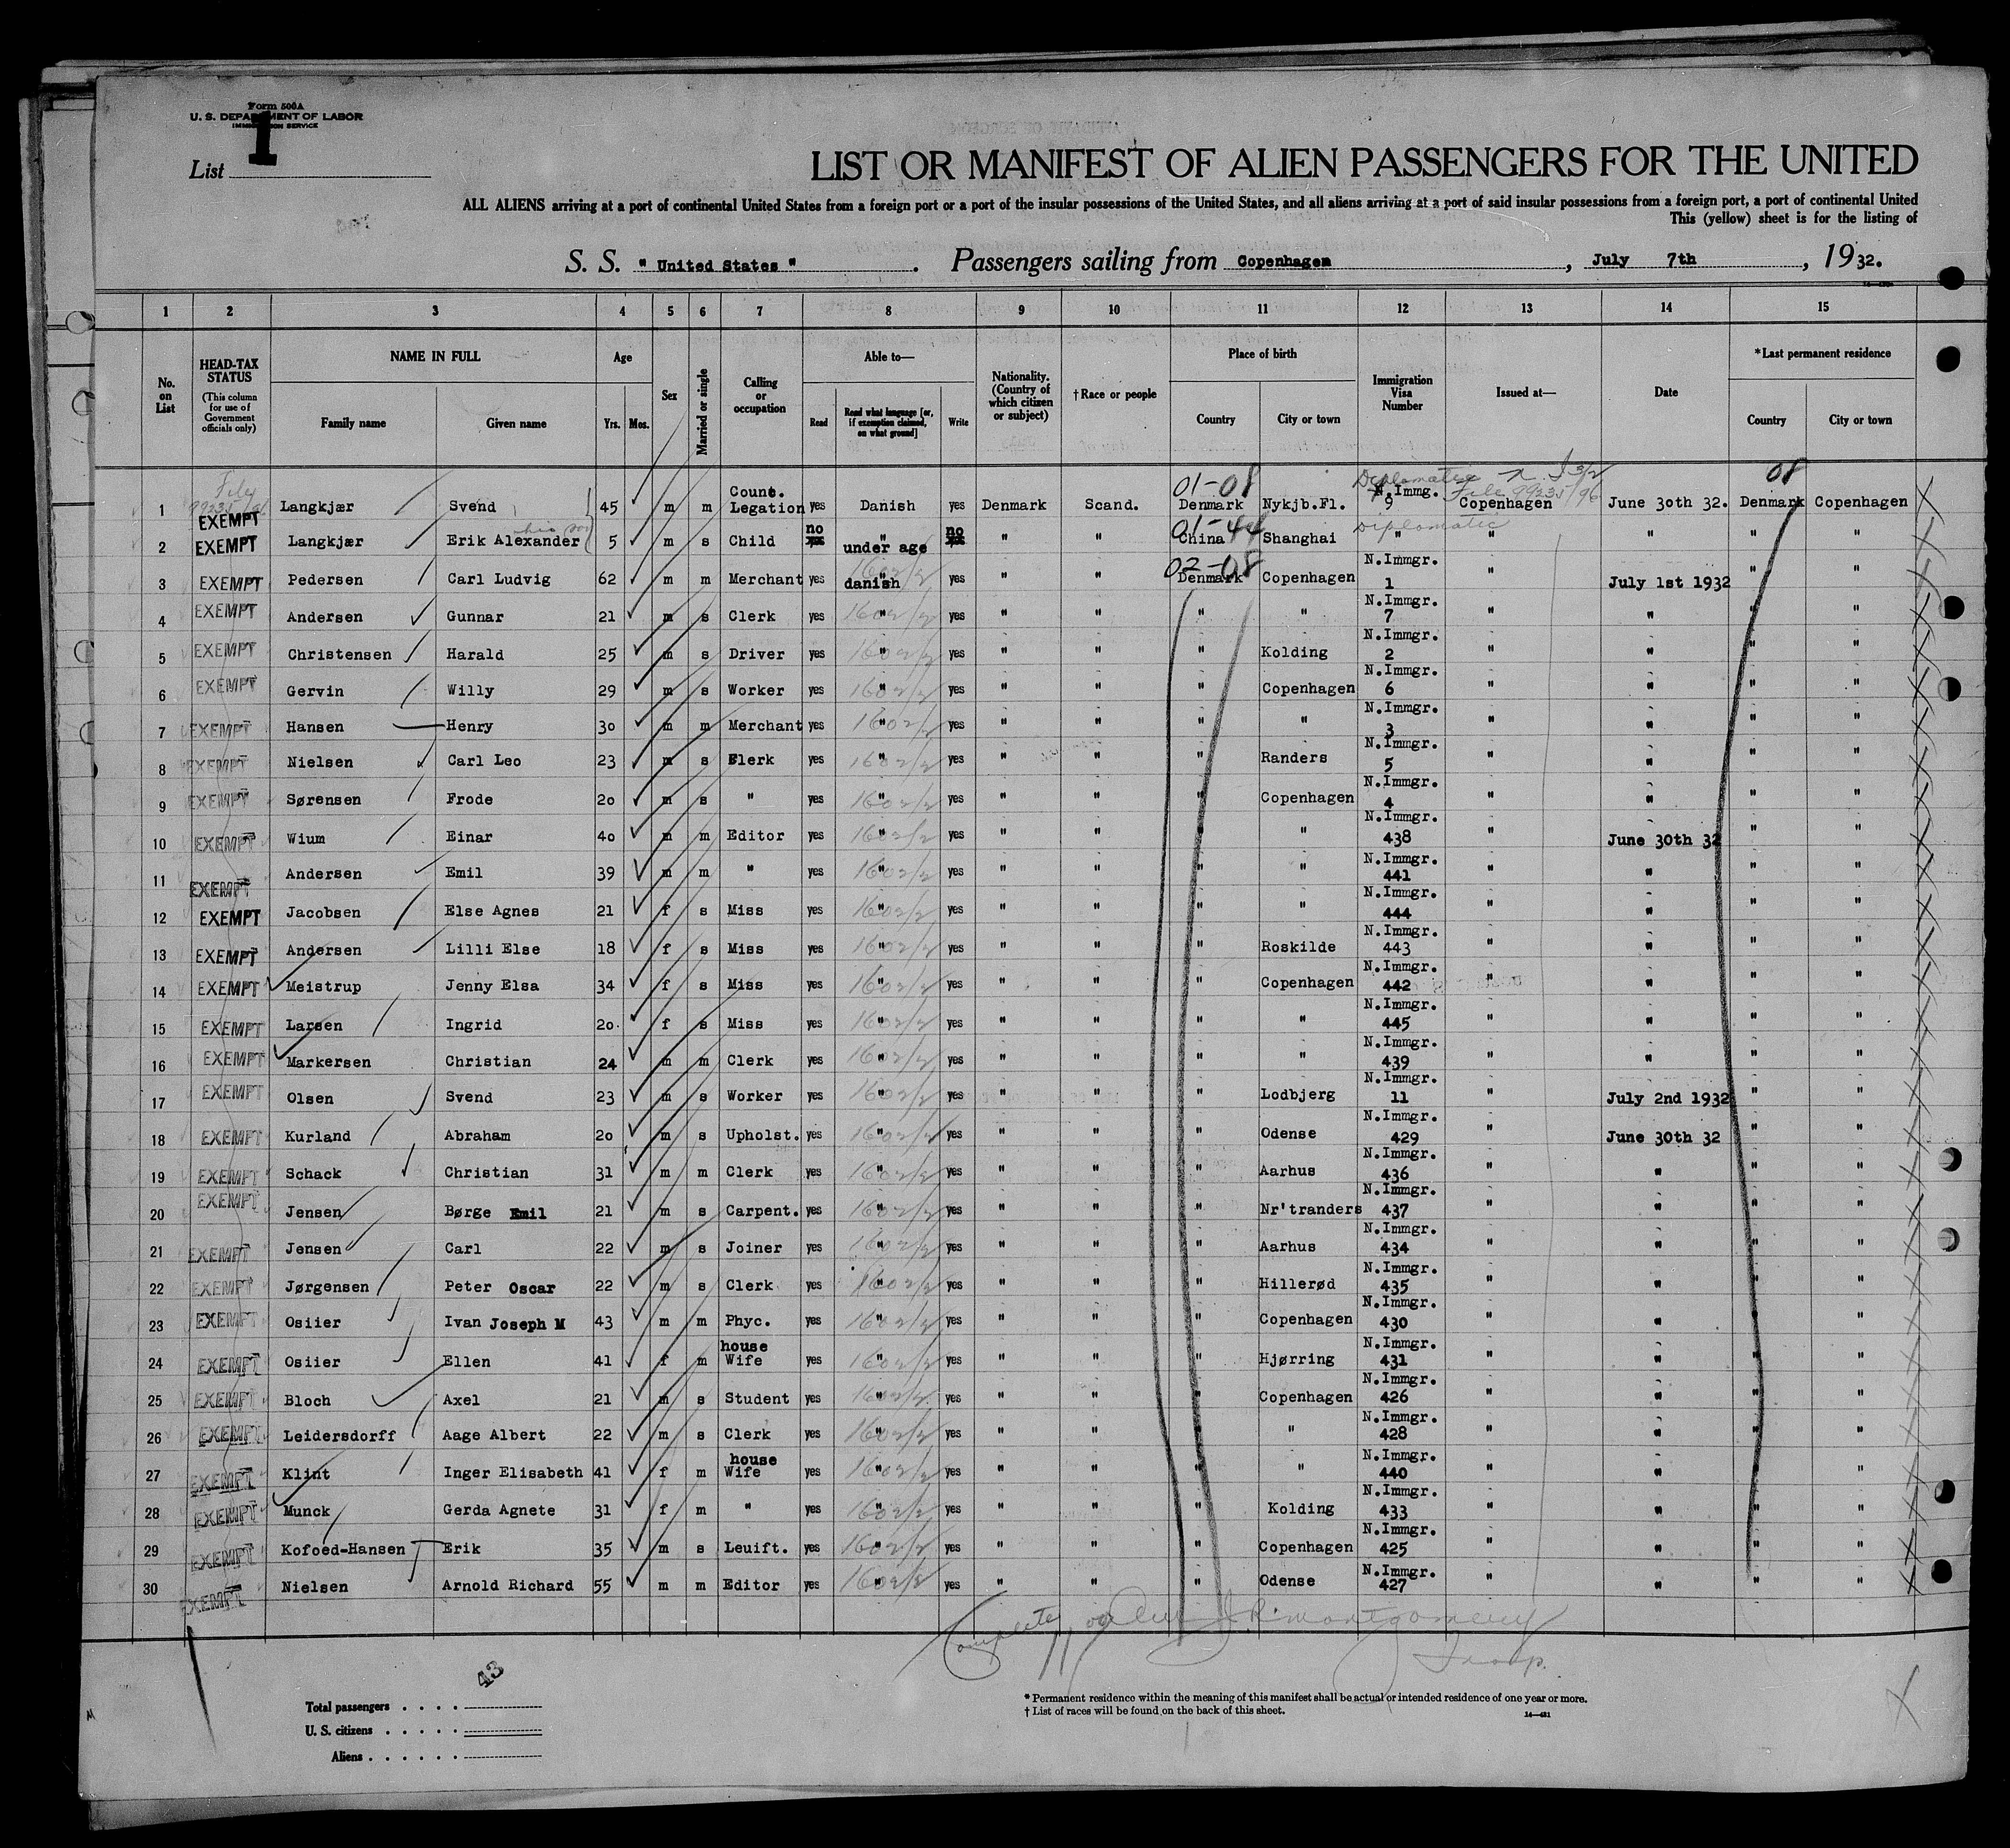 Form 500A
U. S. DEPARTMENT OF LABOR
IMMIGRATION SERVICE
List 1
LIST OR MANIFEST OF ALIEN PASSENGERS FOR THE UNITED
ALL ALIENS arriving at a port of continental United States from a foreign port or a port of the insular possessions of the United States, and all aliens arriving at a port of said insular possessions from a foreign port, a port of continental United
This (yellow) sheet is for the listing of
S. S. "United States". Passengers sailing from Copenhagen, July 7th, 1932.
1 2 3 4 5 6 7 8 9 10 11 12 13 14 15
No. on List
HEAD-TAX STATUS (This column for use of Government officials only)
NAME IN FULL Family name Given name
Age Yrs. Mos.
Sex
Married or single
Calling or occupation
Able to— Read Read what language [or, if exemption claimed, on what ground] Write
Nationality. (Country of which citizen or subject)
†Race or people
Place of birth Country City or town
Immigration Visa Number
Issued at—
Date
*Last permanent residence Country City or town
01-08 Diplomatic 08
File 99235/96
1 EXEMPT Langkjær Svend 45 m m Count. Legation yes Danish yes Denmark Scand. Denmark Nykjb.Fl. N.Immg. 9 Copenhagen June 30th 32. Denmark Copenhagen
his son 01-44 Diplomatic
2 EXEMPT Langkjær Erik Alexander 5 m s Child no " under age no " " China Shanghai " " " " "
02-08
3 EXEMPT Pedersen Carl Ludvig 62 m m Merchant yes danish yes " " Denmark Copenhagen N.Immgr. 1 " July 1st 1932 " "
4 EXEMPT Andersen Gunnar 21 m s Clerk yes " yes " " " " N.Immgr. 7 " " " "
5 EXEMPT Christensen Harald 25 m s Driver yes " yes " " " Kolding N.Immgr. 2 " " " "
6 EXEMPT Gervin Willy 29 m s Worker yes " yes " " " Copenhagen N.Immgr. 6 " " " "
7 EXEMPT Hansen Henry 30 m m Merchant yes " yes " " " " N.Immgr. 3 " " " "
8 EXEMPT Nielsen Carl Leo 23 m s Clerk yes " yes " " " Randers N.Immgr. 5 " " " "
9 EXEMPT Sørensen Frode 20 m s " yes " yes " " " Copenhagen N.Immgr. 4 " " " "
10 EXEMPT Wium Einar 40 m m Editor yes " yes " " " " N.Immgr. 438 " June 30th 32 " "
11 EXEMPT Andersen Emil 39 m m " yes " yes " " " " N.Immgr. 441 " " " "
12 EXEMPT Jacobsen Else Agnes 21 f s Miss yes " yes " " " " N.Immgr. 444 " " " "
13 EXEMPT Andersen Lilli Else 18 f s Miss yes " yes " " " Roskilde N.Immgr. 443 " " " "
14 EXEMPT Meistrup Jenny Elsa 34 f s Miss yes " yes " " " Copenhagen N.Immgr. 442 " " " "
15 EXEMPT Larsen Ingrid 20 f s Miss yes " yes " " " " N.Immgr. 445 " " " "
16 EXEMPT Markersen Christian 24 m m Clerk yes " yes " " " " N.Immgr. 439 " " " "
17 EXEMPT Olsen Svend 23 m s Worker yes " yes " " " Lodbjerg N.Immgr. 11 " July 2nd 1932 " "
18 EXEMPT Kurland Abraham 20 m s Upholst. yes " yes " " " Odense N.Immgr. 429 " June 30th 32 " "
19 EXEMPT Schack Christian 31 m m Clerk yes " yes " " " Aarhus N.Immgr. 436 " " " "
20 EXEMPT Jensen Børge Emil 21 m s Carpent. yes " yes " " " Nr'tranders N.Immgr. 437 " " " "
21 EXEMPT Jensen Carl 22 m s Joiner yes " yes " " " Aarhus N.Immgr. 434 " " " "
22 EXEMPT Jørgensen Peter Oscar 22 m s Clerk yes " yes " " " Hillerød N.Immgr. 435 " " " "
23 EXEMPT Osiier Ivan Joseph M 43 m m Phyc. yes " yes " " " Copenhagen N.Immgr. 430 " " " "
24 EXEMPT Osiier Ellen 41 f m house Wife yes " yes " " " Hjørring N.Immgr. 431 " " " "
25 EXEMPT Bloch Axel 21 m s Student yes " yes " " " Copenhagen N.Immgr. 426 " " " "
26 EXEMPT Leidersdorff Aage Albert 22 m s Clerk yes " yes " " " " N.Immgr. 428 " " " "
27 EXEMPT Klint Inger Elisabeth 41 f m house Wife yes " yes " " " " N.Immgr. 440 " " " "
28 EXEMPT Munck Gerda Agnete 31 f m " yes " yes " " " Kolding N.Immgr. 433 " " " "
29 EXEMPT Kofoed-Hansen Erik 35 m s Leuift. yes " yes " " " Copenhagen N.Immgr. 425 " " " "
30 EXEMPT Nielsen Arnold Richard 55 m m Editor yes " yes " " " Odense N.Immgr. 427 " " " "
Complete R. Montgomery
Insp.
43
Total passengers
U. S. citizens
Aliens
* Permanent residence within the meaning of this manifest shall be actual or intended residence of one year or more.
† List of races will be found on the back of this sheet.
14—421